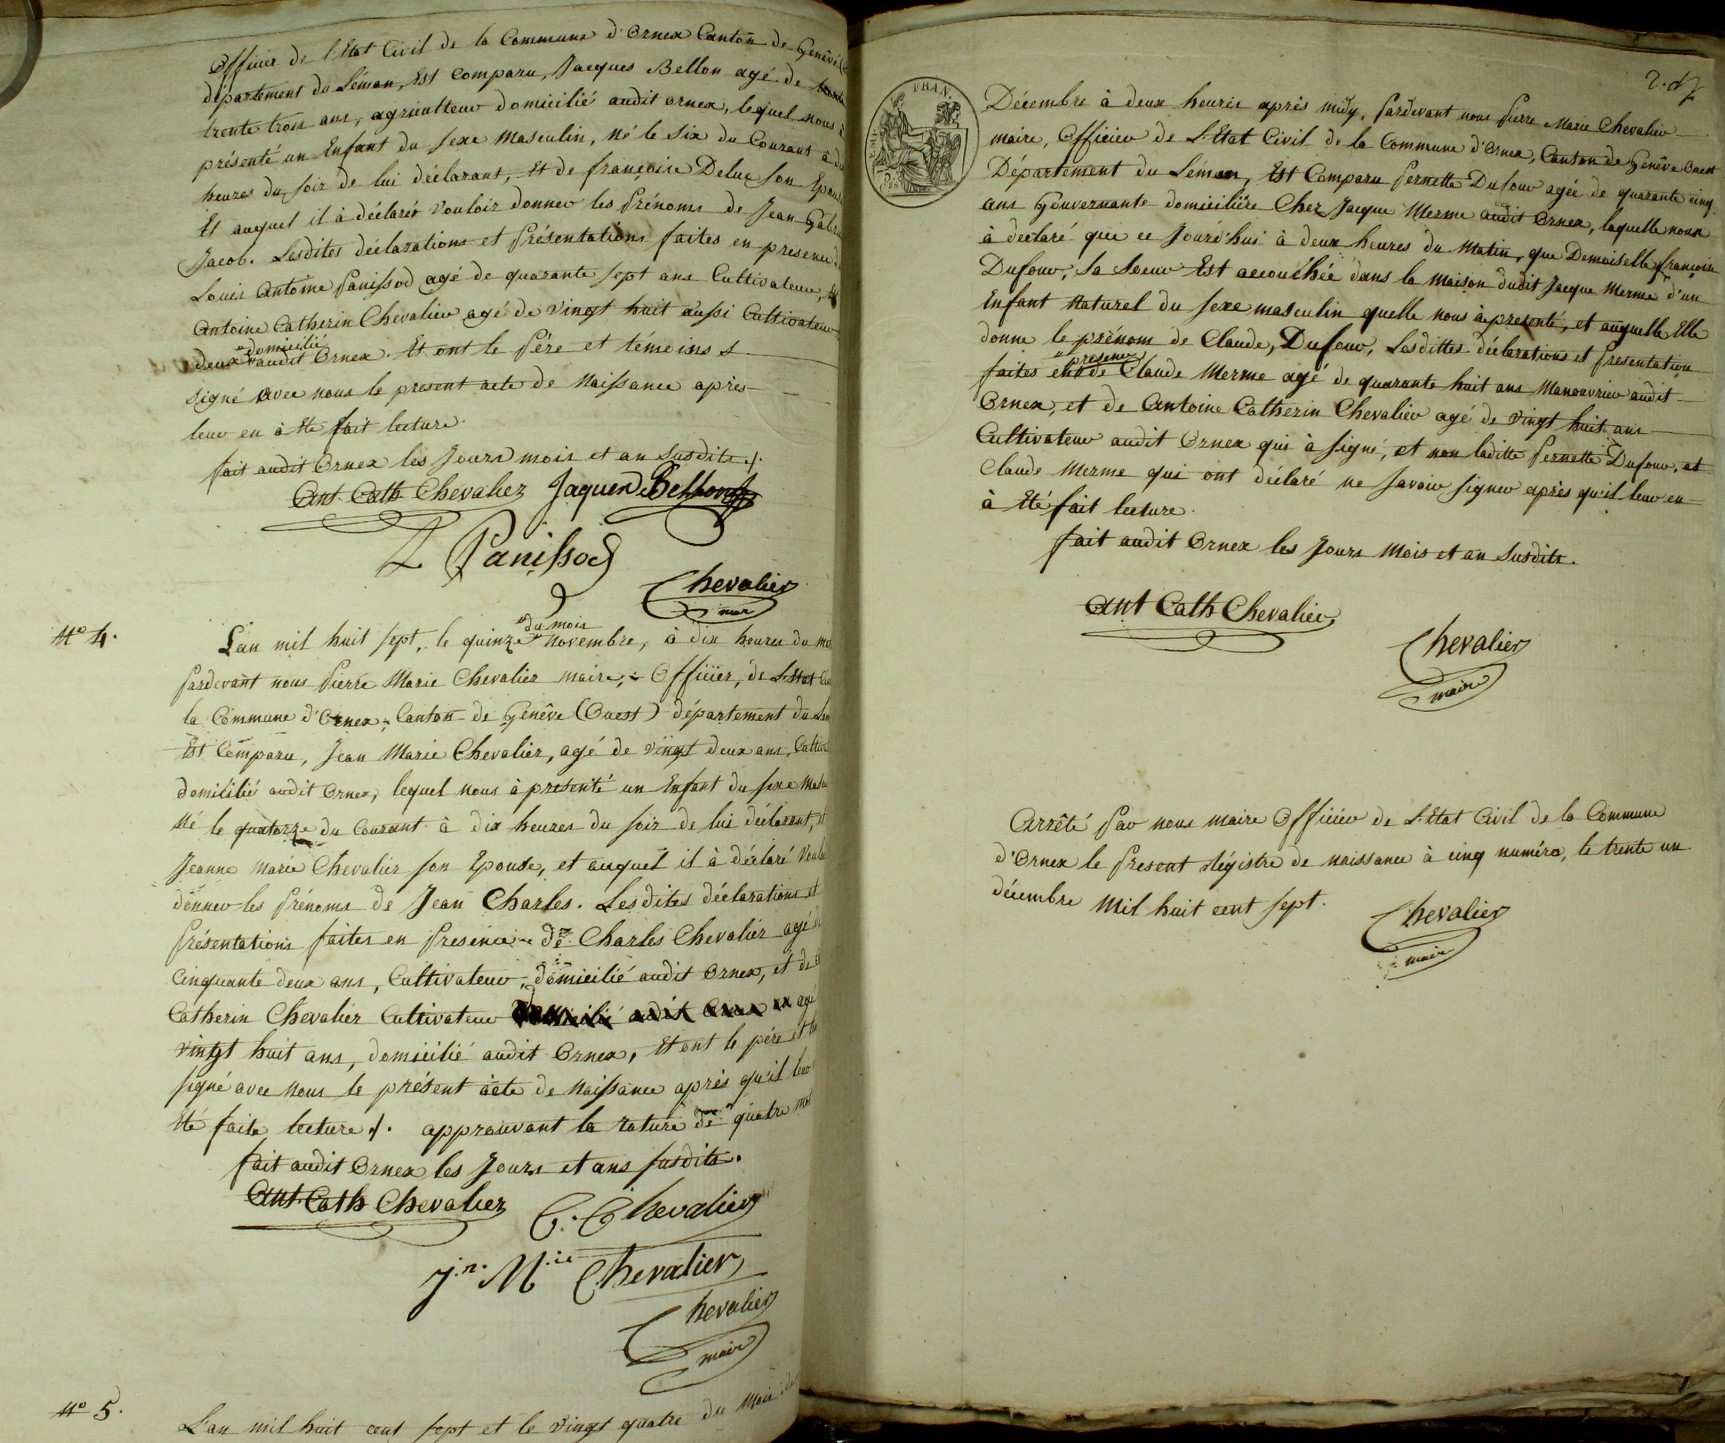 Officier de l'Etat Civil de la Commune d'Ornex Canton de Genêve
département du Léman, Est comparu, Jacques Bellon agé de
trente trois ans, agriculteur domicilié audit ornex, lequel nous
présenté un Enfant du sexe Masculin, né le Six du Courant à
heures du soir de lui déclarant, Et de françoise Deluc son Epouse
Et auquel il à déclarer vouloir donner les Prénoms de Jean
Jacob. Lesdites déclarations et Présentations faites en presence
Louis antoine Panissod agé de quarante sept ans Cultivateur,
antoine Catherin Chevalier agé de vingt huit aussi Cultivateur
"domicilié
deux "audit Ornex. Et ont le Père et témoins
signé avec nous le present acte de Naissance après
leur en à Eté fait lecture.
fait audit Ornex les Jours mois et an susdits ./.
Ant. Cath Chevalier Jaques Bellon
L Panissod
Chevalier
mair
N° 4.
"du mois
L'an mil huit sept, le quinze " Novembre, à dix heures du
Pardevant nous Pierre Marie Chevalier maire, Officier, de L'Etat
la Commune d'Ornex, Canton de Genêve (Ouest) département du
Est Comparu, Jean Marie Chevalier, agé de vingt deux ans,
domicilié audit Ornex, lequel nous à presenté un Enfant du sexe
Né le quatorze du Courant à dix heures du soir de lui déclarant,
Jeanne Marie Chevalier son Epouse, et auquel il à déclaré
donner les Prénoms de Jean Charles. Lesdites déclarations et
Présentations faites en Presence de Charles Chevalier agé
cinquante deux ans, Cultivateur, domicilié audit Ornex, et de
Catherin Chevalier Cultivateur domicilié audit Ornex agé
vingt huit ans, domicilié audit Ornex, Et ont le père et
signé avec nous le présent acte de Naissance après qu'il leur
Eté faite lecture ./. approuvant la rature de quatre
fait audit Ornex les Jours et ans susdits.
Ant. Cath Chevalier C. Chevalier
Jn. Mie Chevalier
Chevalier
mair
N° 5.
L'an mil huit cent sept et le vingt quatre du Mois
FRAN.
Décembre à deux heures après midy, Pardevant nous Pierre Marie Chevalier
maire, Officier de L'Etat Civil de la Commune d'Ornex, Canton de Genêve Ouest
Département du Léman, Est Comparu Pernette Dufour agée de quarante cinq
ans Gouvernante domiciliére Chez Jacque Merme audit Ornex, laquelle nous
à declaré que ce Jourd'hui à deux heures du Matin, que Demoiselle françoise
Dufour, Sa Soeur Est accouchée dans la Maison dudit Jacque Merme d'un
Enfant Naturel du sexe masculin quelle nous à presenté, et auquelle Elle
donne le prénom de Claude, Dufour, Lesdittes déclarations et Presentation
"presence
faites en "de Claude Merme agé de quarante huit ans Manouvrier audit
Ornex, et de Antoine Catherin Chevalier agé de vingt huit ans
Cultivateur audit Ornex qui à signé, et non laditte Pernette Dufour, et
Claude Merme qui ont déclaré ne savoir signer après qu'il leur en
à Eté fait lecture.
fait audit Ornex les Jours Mois et an susdits.
Ant Cath Chevalier
Chevalier
maire
Arrêté Par nous maire Officier de L'Etat Civil de la Commune
d'Ornex le Present Régistre de naissance à cinq numéro, le trente un
décembre Mil huit cent sept.
Chevalier
maire